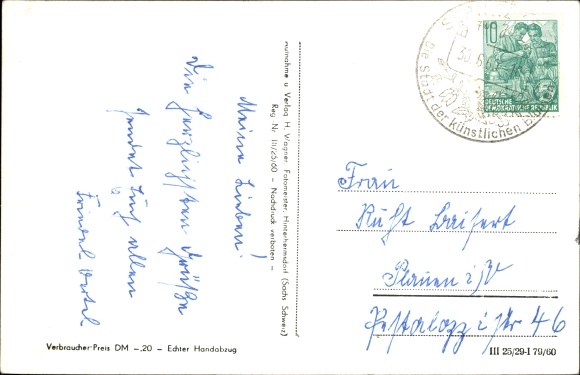 Meine Lieben!
Die herzlichsten Grüße
sendet Euch allen
Friedel
Aufnahme u Verlag H. Wagner, Fotomeister, Hinterhermsdorf (Sächs Schweiz)
Reg.-Nr. III/25/60 – Nachdruck verboten –
Verbraucher-Preis DM -,20 – Echter Handabzug
10
DEUTSCHE
DEMOKRATISCHE REPUBLIK
30.6.
Die Stadt der künstlichen
Frau
Plauen i/V
Pestalozzistr 46
III 25/29-I 79/60